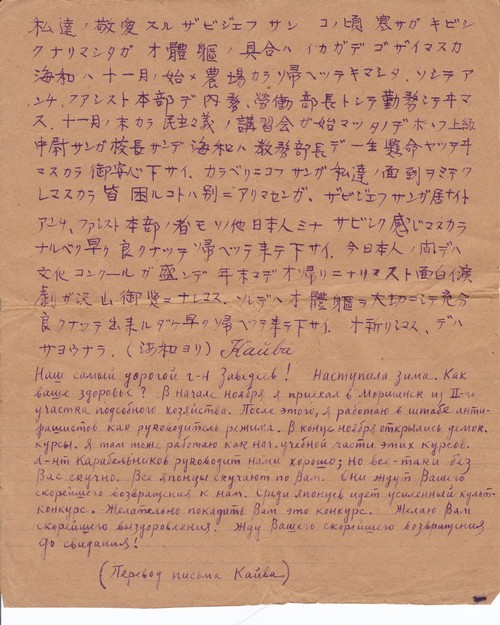 私達ノ敬愛スル ザビジェフ サン コノ頃 寒サガ キビシ
クナリマシタガ オ體軀ノ具合ハ イカガデゴザイマスカ
海和ハ 十一月ノ始メ農場カラ帰ヘッテキマシタ. ソシテア
ンチ,ファシスト本部デ内務,労働部長トシテ勤務シテヰマ
ス. 十一月ノ末カラ民主々義ノ講習会ガ始マッタノデ 上級
中尉サンガ校長サンデ海和ハ教務部長デ一生懸命ヤッテヰ
マスカラ御安心下サイ. カラベリニコフサンガ私達ノ面倒ヲミテク
レマスカラ皆困ルコトハ別ニアリマセンガ、ザビジェフサンガ居ナイト
アンチ,ファシスト本部ノ者モソノ他日本人ミナ サビシク感ジマスカラ
ナルベク早ク良クナッテ帰ヘッテ来テ下サイ. 今日本人ノ間デハ
文化コンクールガ盛ンデ年末マデオ帰リニナリマスト面白イ演
劇ガ沢山御覧ニナレマス. ソレデハオ體軀ヲ大切ニシテ充分
良クナッテ出来ルダケ早ク帰ヘッテ来テ下サイ. オ祈リシマス、デハ
サヨウナラ. (海和ヨリ) Кайва
Наш самый дорогой г-н Заведеев! Наступила зима. Как
ваше здоровье? В начале ноября я приехал в Моршанск из II-го
участка подсобного хозяйства. После этого, я работаю в штабе анти-
фашистов как руководитель режима. В конце ноября открылись демок.
курсы. Я там тоже работаю как нач. учебной части этих курсов.
Л-нт Карабельников руководит нами хорошо; но все-таки без
Вас скучно. Все японцы скучают по Вам. Они ждут Вашего
скорейшего возвращения к нам. Среди японцев идет усиленный культ-
конкурс. Желательно показать Вам это конкурс. Желаю Вам
скорейшего выздоровления. Жду Вашего скорейшего возвращения
До свидания!
(Перевод письма Кайва)